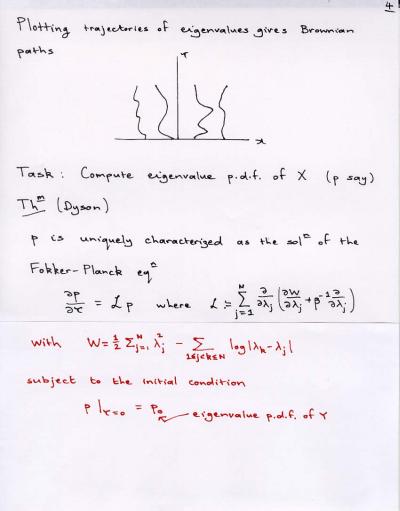 4
Plotting trajectories of eigenvalues gives Brownian
paths
τ
x
Task : Compute eigenvalue p.d.f. of X (p say)
Thᵐ (Dyson)
p is uniquely characterized as the solⁿ of the
Fokker-Planck eqⁿ
∂p/∂τ = ℒ p where ℒ := ∑_{j=1}^{N} ∂/∂λ_j (∂W/∂λ_j + β⁻¹ ∂/∂λ_j)
with W = ½ ∑_{j=1}^{N} λ_j² − ∑_{1≤j<k≤N} log|λ_k − λ_j|
subject to the initial condition
p |_{τ=0} = p₀ ← eigenvalue p.d.f. of Y